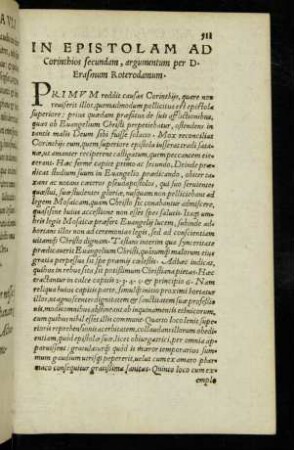 511
IN EPISTOLAM AD
Corinthios secundam, argumentum per D.
Erasmum Roterodamum.
PRIMVM reddit causas Corinthijs, quare non
reuiserit illos, quemadmodum pollicitus est epistola
superiore: prius quædam præfatus de suis afflictionibus,
quas ob Euangelium Christi perpetiebatur, ostendens in
tantis malis Deum sibi fuisse solatio. Mox reconciliat
Corinthijs eum, quem superiore epistola iusserat tradi sata-
næ, ut amanter reciperent castigatum, quem peccantem eiece-
rant. Hæc ferme capite primo ac secundo. Deinde prædi-
cat studium suum in Euangelio prædicando, obiter taxans
ac notans cauteros pseudapostolos, qui
quæstui, sua studentes gloriæ, nusquam non pollicebant ad
legem Mosaicam, quam Christi sic conabantur admiscere,
quasi sine huius accessione non esset spes salutis. Itaque umbris
legis Mosaicæ præfert Euangelij lucem, subinde ad-
horians illos non ad ceremonias legis, sed ad conscientiam
uitamque Christo dignam. Testans interim qua synceritate
prædicauerit Euangelium Christi, quibusque malorum eius
gratia perpessus sit spe præmij cælestis. Adhæc indicat,
quibus in rebus sita sit potissimum Christiana pietas. Hæc
tractantur in calce capitis 2. 3. 4. 5. & principio 6. Nam
reliqua huius capitis parte, simulque initio proximi hortatur
illos, ut agnoscentes dignitatem & sanctitatem suæ professio
nis, modis omnibus abstineant ab inquinamentis ethnicorum,
cum quibus nihil esset illis commune. Quarto loco lenit supe-
rioris reprehensionis acerbitatem, collaudans illorum obedi-
entiam, quod epistolæ suæ, licet obiurgatrici, per omnia ap-
paruissent: gratulaturque quod is mœror temporarius sum
mum gaudium utrisque pepererit, uelut cum ex amaro phar-
maco consequitur gratissima sanitas. Quinto loco cum ex
emplo